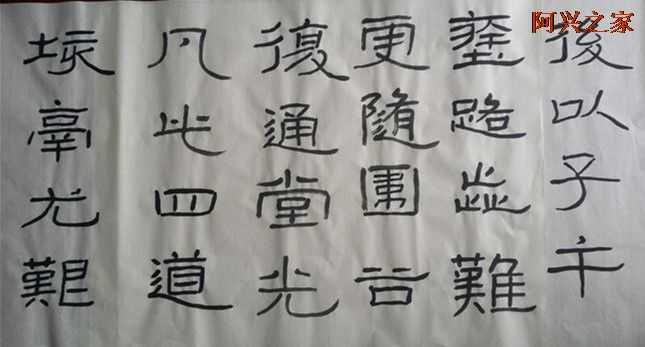 阿兴之家
後以子午
塗路歰難
更隨圍谷
復通堂光
凡此四道
垓鬲尤艱